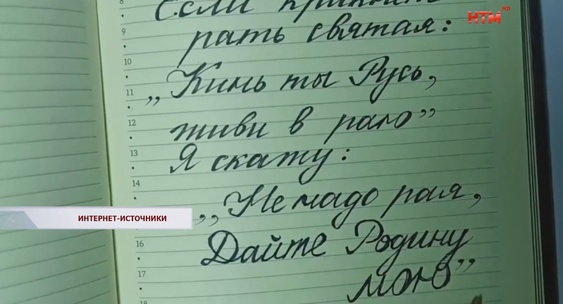 Если крикнет
рать святая:
„Кинь ты Русь,
живи в раю”
Я скажу:
„Не надо рая,
Дайте Родину
мою”
НТМ
ИНТЕРНЕТ-ИСТОЧНИКИ
9
10
11
12
13
14
16
17
18